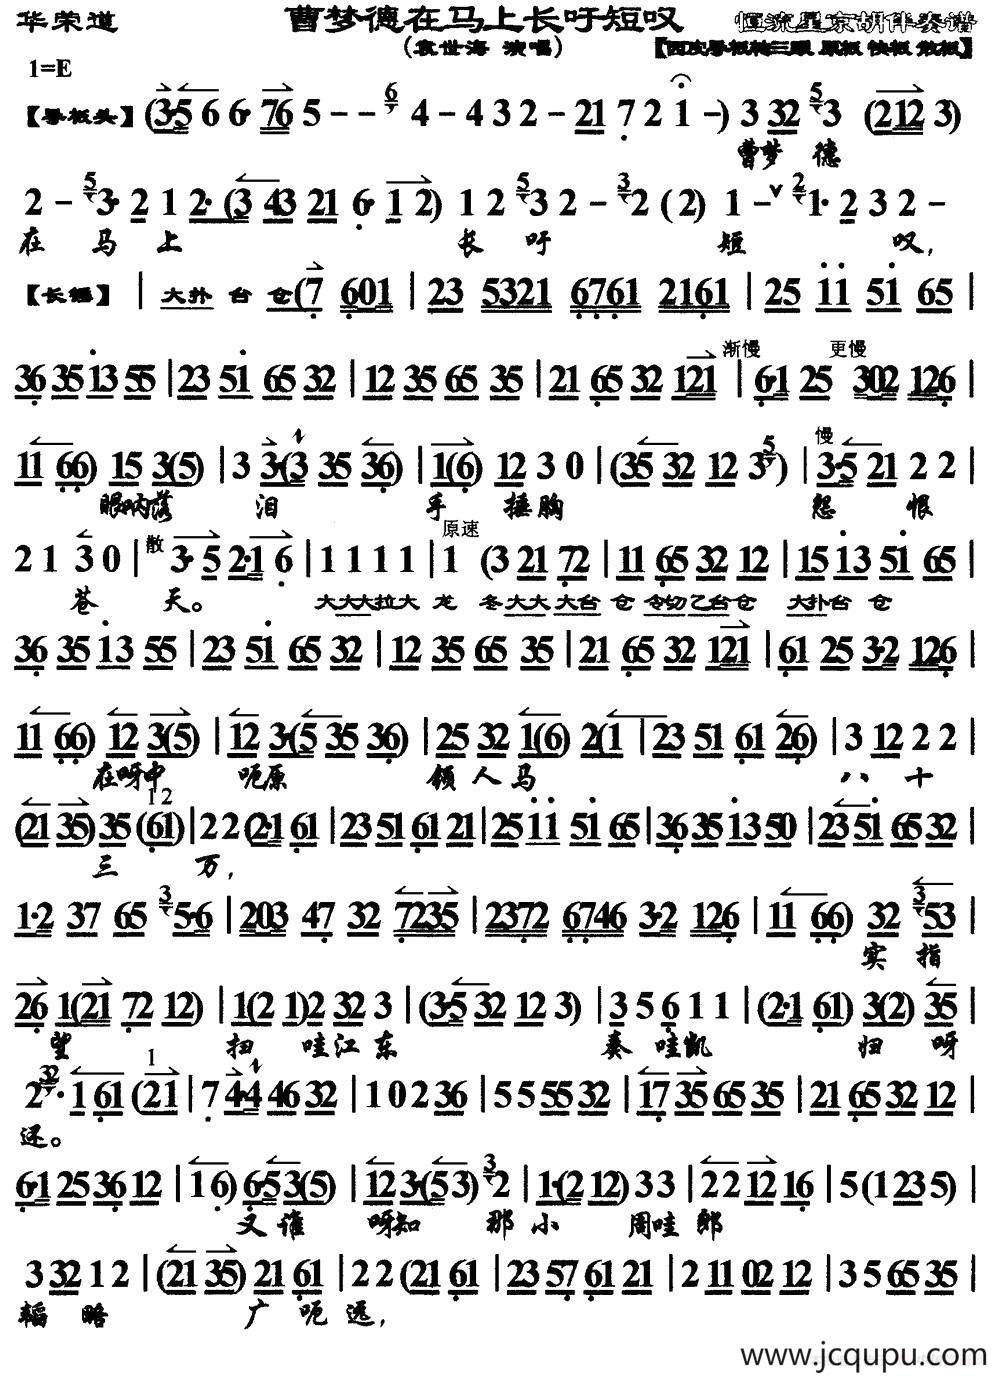 华荣道 曹梦德在马上长吁短叹 恒流星京胡伴奏谱
(袁世海 演唱) 【西皮导板转三眼 原板 快板 散板】
1=E
【导板头】 (3·5 6 6· 76 5 - - 6 4 - 4 3 2 - 21 7 2 1 -) 3 32 5 3 (212 3)
曹梦 德
2 - 5 3· 2 1 2· (3 43 21 6· 1 2) 1 2 5 3 2 - 3 2 (2) 1 - ∨ 2 1· 2 3 2 -
在 马 上 长 吁 短 叹,
【长锤】 | 大扑 台 仓 (7 601 | 23 5321 6761 2161 | 25 11 51 65 |
渐慢 更慢
36 35 13 55 | 23 51 65 32 | 12 35 65 35 | 21 65 32 121 | 6·1 25 302 126 |
慢
11 66) 15 3(5) | 3 3·(3 35 36) | 1(6) 12 3 0 | (35 32 12 3 5) | 3·5 21 2 2 |
眼呐落 泪 手 捶胸 怨 恨
散 原速
2 1 3 0 | 3·5 2·1 6 | 1 1 1 1 | 1 (3 21 72 | 11 65 32 12 | 15 13 51 65 |
苍 天。 大大大拉大 龙 冬大大 大台 仓 令切 乙台仓 大扑台 仓
36 35 13 55 | 23 51 65 32 | 12 35 65 35 | 21 65 32 121 | 61 25 3·2 126 |
11 66) (12 3(5) | 12 3·(5 35 36) | 25 32 1(6) 2(1 | 23 51 61 26) | 3 12 2 2 |
在呀中 呃原 领人马 八 十
12
(21 35) 35 (61) | 2 2 (2·1 61 | 23 51 61 21 | 25 11 51 65 | 36 35 13 50 | 23 51 65 32 |
三 万,
1·2 37 65 3 5·6 | 203 47 32 7235 | 2372 6746 3·2 126 | 11 66) 32 3 53 |
实 指
26 1(21 72 12) | 1(2 1)2 32 3 | (3·5 32 12 3) | 3 5 6 1 1 | (2·1 61) 3(2) 35 |
望 扫 哇江 东 奏 哇凯 归 呀
1
32 2· 1 61 (21 | 7 4·4 46 32 | 1 0 2 36 | 5 5 55 32 | 17 35 65 35 | 21 65 32 12 |
还。
6·1 25 36 12 | 1 6) 6·5 3(5) | 12 3·(5 3) 3 2 | 1·(2 12) 3 3 | 22 12 16 | 5 (1 23 5) |
又 谁 呀知 那 小 周哇 郎
3 32 1 2 | (21 35) 21 61 | 2 2 (21 61 | 23 57 61 21 | 2 11 02 12 | 3 5 65 35 |
韬 略 广 呃 远,
www.jcqupu.com